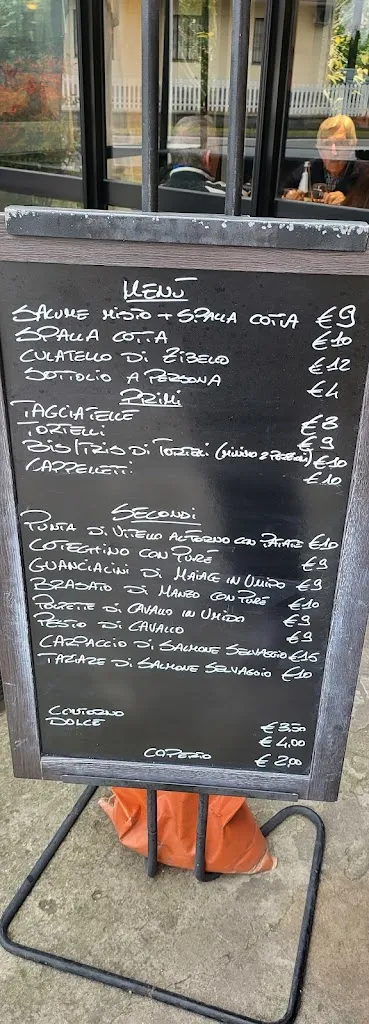 MENÙ
SALUME MISTO + SPALLA COTTA €9
SPALLA COTTA €10
CULATELLO DI ZIBELLO €12
SOTTOLIO A PERSONA €4
PRIMI
TAGLIATELLE €8
TORTELLI €9
BIS/TRIS DI TORTELLI (MINIMO 2 PERSONE) €10
CAPPELLETTI €10
SECONDI
PUNTA DI VITELLO AL FORNO CON PATATE €10
COTEGHINO CON PURÈ €9
GUANCIALINI DI MAIALE IN UMIDO €9
BRASATO DI MANZO CON PURÈ €10
POLPETTE DI CAVALLO IN UMIDO €9
PESTO DI CAVALLO €9
CARPACCIO DI SALMONE SELVAGGIO €15
TARTARE DI SALMONE SELVAGGIO €10
CONTORNO €3,50
DOLCE €4,00
COPERTO €2,00